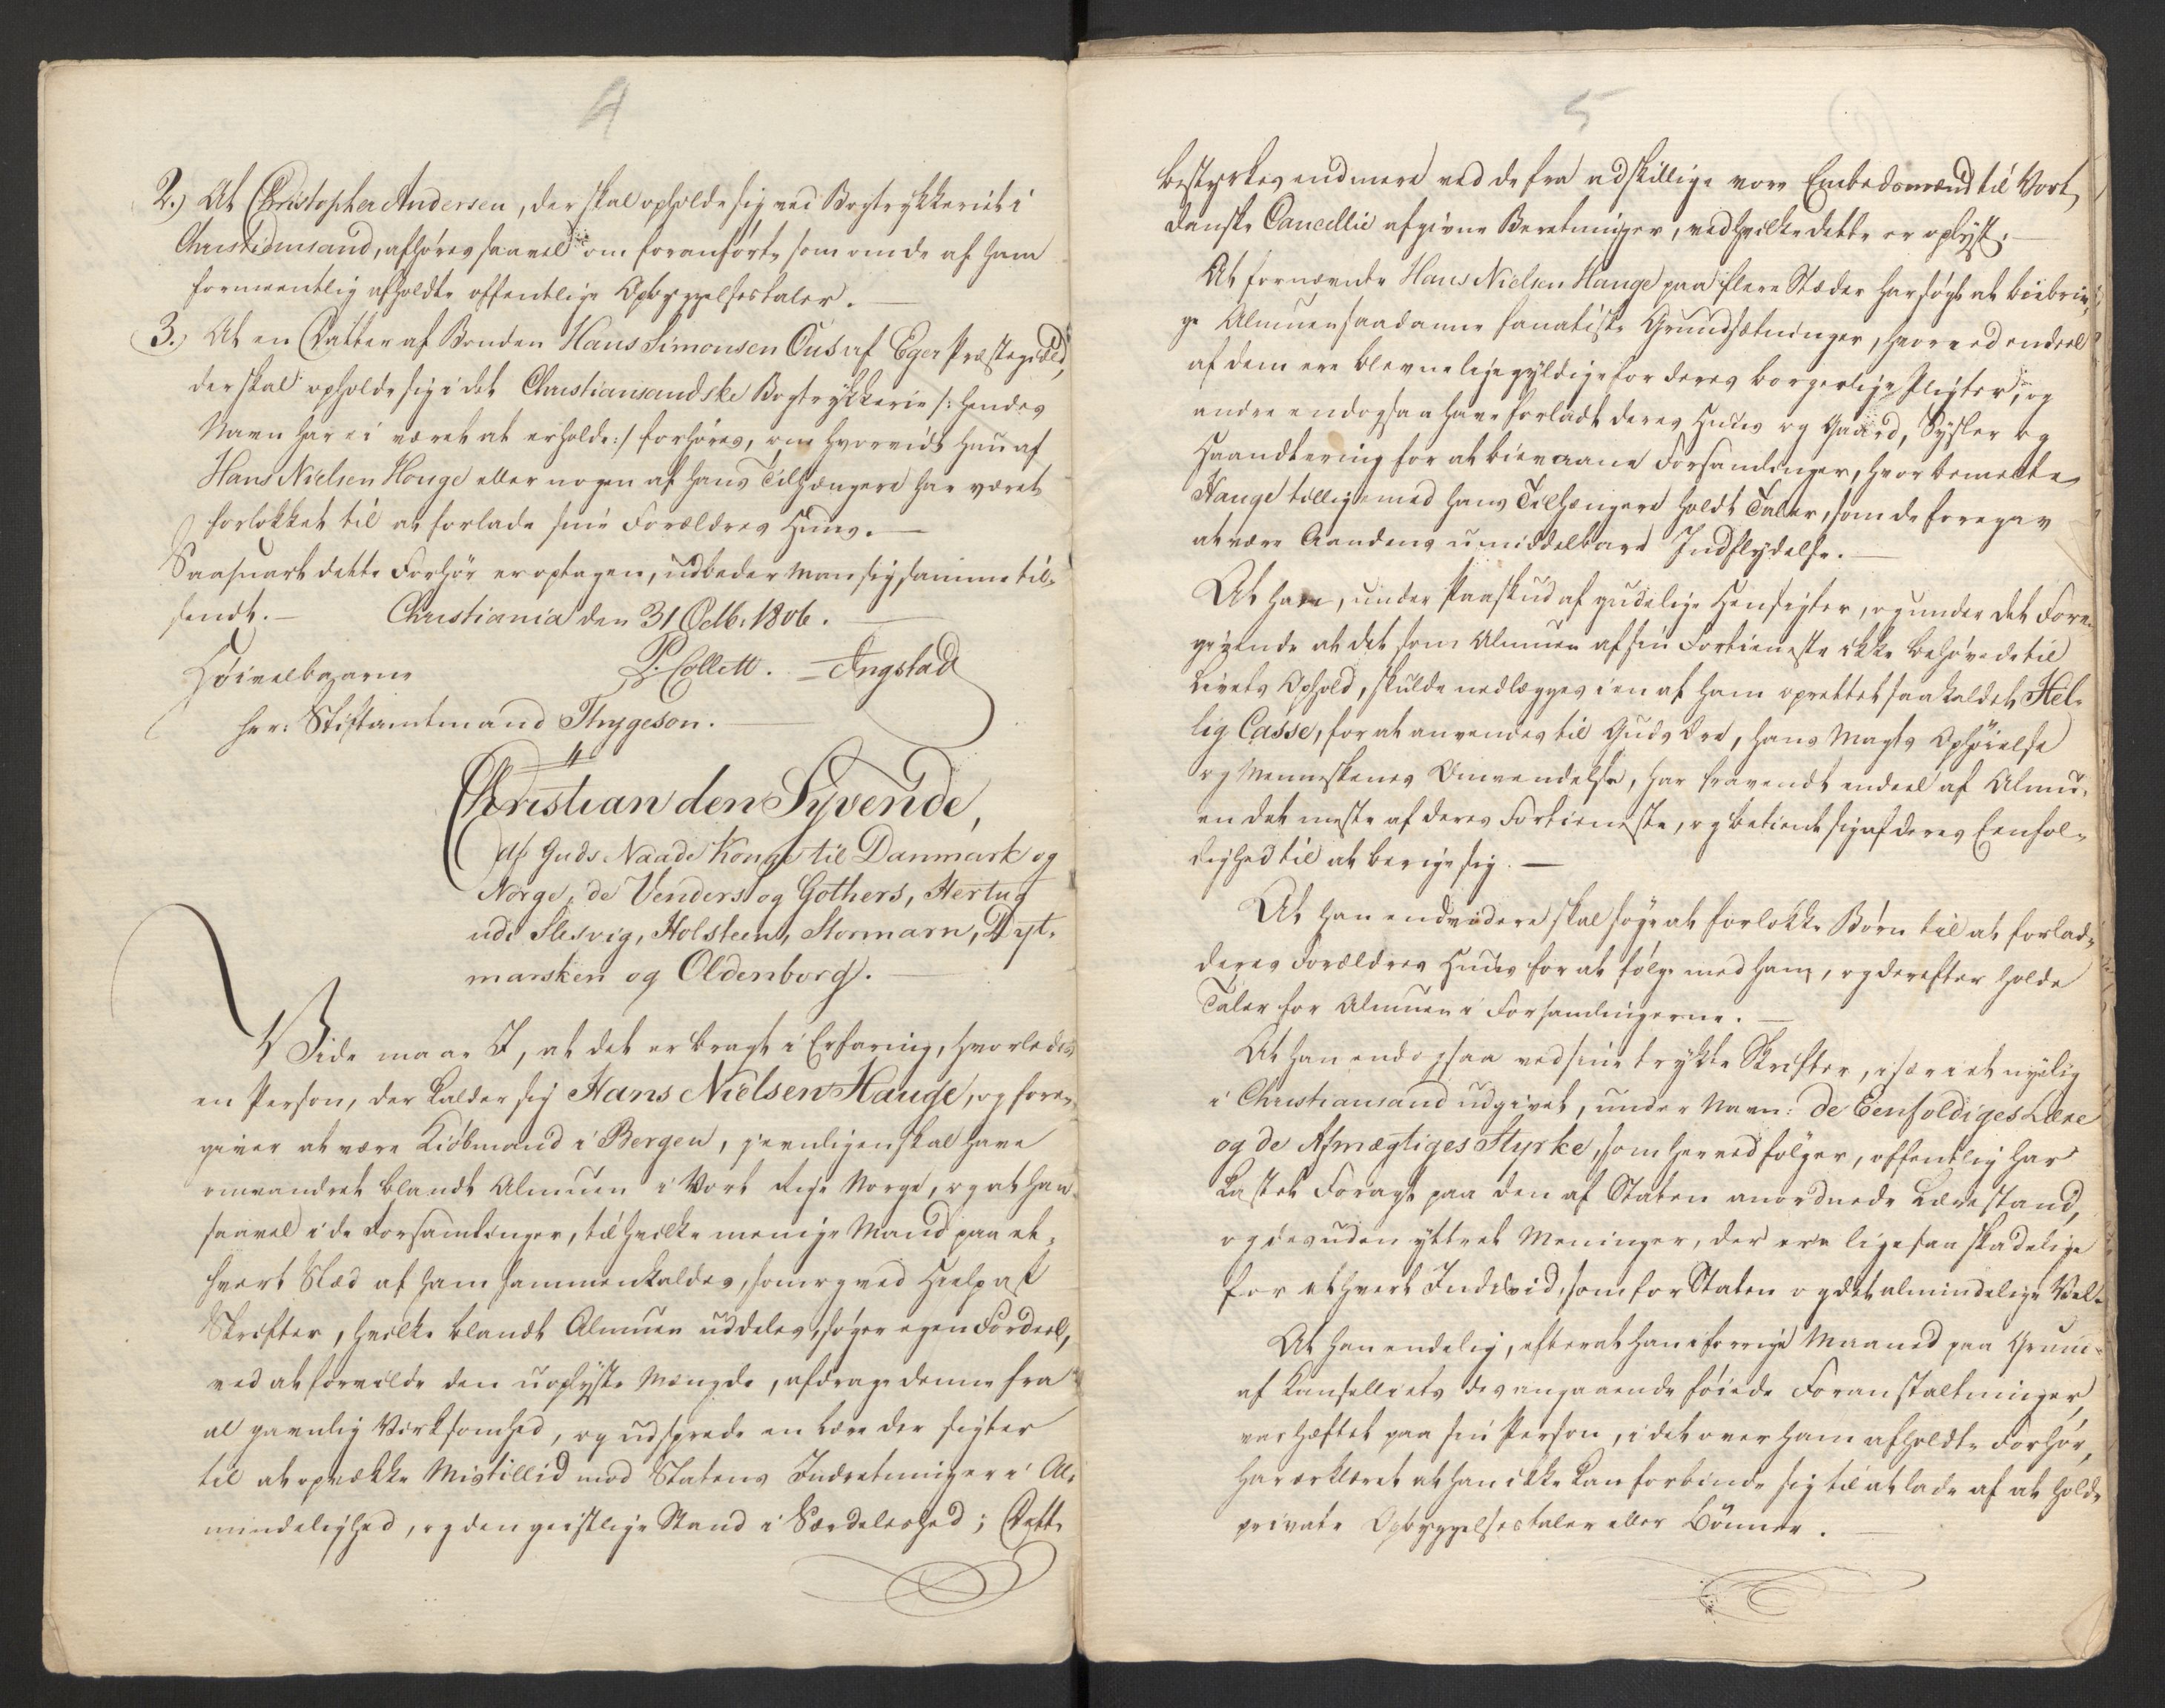 4
2.) At Christopher Andersen, der skal opholde sig ved Bogtrykkeriet i
Christiansand, afhøres saavel om foranførte som om de af ham
formeentlig afholdte offentlige Opbyggelsestaler.
3.) At en Datter af Bonden Hans Simonsen Ous af Eger Præstegield,
der skal opholde sig i det Christiansandske Bogtrykkerie /: hendes
Navn har ei været at erholde :/ forhøres, om hvorvidt hun af
Hans Nielsen Houge eller nogen af hans Tilhængere har været
forlokket til at forlade sine Forældres Huus.
Saasnart dette Forhør er optagen, udbeder man sig samme til-
sendt. — Christiania den 31 Octb. 1806.
P. Collett. Ingstad
Høivelbaarne
Herr Stiftamtmand Thygeson.
Christian den Syvende,
af Guds Naade Konge til Danmark og
Norge, de Venders og Gothers, Hertug
udi Slesvig, Holsteen, Stormarn, Dyt-
marsken og Oldenborg.
Vide maae I, at det er bragt i Erfaring, hvorledes
en Person, der kalder sig Hans Nielsen Hauge, og fore-
giver at være Kiøbmand i Bergen, jevnligen skal have
omvandret blandt Almuen i Vort Rige Norge, og at han
saavel i de Forsamlinger, til hvilke menige Mand paa et-
hvert Sted af ham sammenkaldes, som og ved Hielp af
Skrifter, hvilke blandt Almuen uddeles, søger egen Fordeel,
ved at forvilde den uoplyste Mængde, afdrage denne fra
al gavnlig Virksomhed, og udsprede en Lære der sigter
til at opvække Mistillid mod Statens Indretninger i Al-
mindelighed, og den geistlige Stand i Særdeleshed; Dette
5
bestyrkes end mere ved de fra adskillige vore Embedsmænd til Vort
danske Cancellie afgivne Beretninger, ved hvilke dette er oplyst:
At fornævnte Hans Nielsen Hauge paa flere Stæder har søgt at biebrin-
ge Almuen saadanne fanatiske Grundsætninger, hvorved endeel
af dem ere blevne ligegyldige for deres borgerlige Pligter, og
andre endogsaa have forladt deres Huus og Gaard, Sysler og
Haandtering for at bievaane Forsamlinger, hvor bemeldte
Hauge tilligemed hans Tilhængere holdt Taler, som de foregav
at være Aandens umiddelbare Indflydelse.
At han, under Paaskud af gudelige Hensigter, og under det Fore-
givende at det som Almuen af sin Fortieneste ikke behøvede til
Livets Ophold, skulde nedlægges i en af ham oprettet saa kaldet Hel-
lig Casse, for at anvendes til Guds Ære, hans Magts Ophøielse
og Menneskenes Omvendelse, har fravendt endeel af Almu-
en det meste af deres Fortieneste, og betient sig af deres Eenfol-
dighed til at berige sig.
At han endvidere skal søge at forlokke Børn til at forlade
deres Forældres Huus for at følge med ham, og derefter holde
Taler for Almuen i Forsamlingerne.
At han endogsaa ved sine trykte Skrifter, især i et nylig
i Christiansand udgivet, under Navn: de Eenfoldiges Lære
og de Afmægtiges Styrke, som herved følger, offentlig har
kastet Foragt paa den af Staten anordnede Lærestand,
og desuden yttret Meninger, der ere ligesaa skadelige
for ethvert Individ, som for Staten og det almindelige Vel.
At han endelig, efterat han i forrige Maaned paa Grund
af Cancelliets desangaaende føiede Foranstaltninger,
var hæftet paa sin Person, i det over ham afholdte Forhør,
har erklæret at han ikke kan forbinde sig til at lade af at holde
private Opbyggelsestaler eller Bønner.